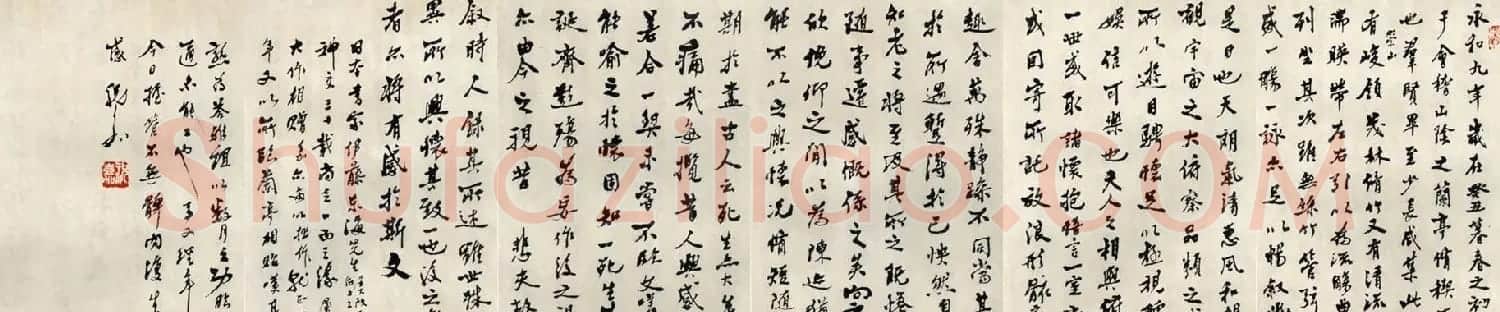 永和九年歲在癸丑暮春之初
于會稽山陰之蘭亭脩禊
也羣賢畢至少長咸集此
崇山
有峻領茂林脩竹又有清流
湍暎帶左右引以為流觴曲
列坐其次雖無絲竹管弦
盛一觴一詠亦足以暢敘幽
是日也天朗氣清惠風和暢
觀宇宙之大俯察品類之
所以遊目騁懷足以極視聽
娛信可樂也夫人之相與俯
一世或取諸懷抱悟言一室
或因寄所託放浪形骸
趣舍萬殊靜躁不同當其
於所遇蹔得於己怏然自
知老之將至及其所之既惓
隨事遷感慨係之矣向之
欣俛仰之閒以為陳迹猶
能不以之興懷況脩短隨
期於盡古人云死生亦大矣
不痛哉每攬昔人興感
若合一契未嘗不臨文嗟
能喻之於懷固知一死生
誕齊彭殤為妄作後之
亦由今之視昔悲夫故
敘時人錄其所述雖世殊
異所以興懷其致一也後之
者亦將有感於斯文
日本書家伊藤東海先生
神交三十載尚乏一面之緣
大作相贈余亦每以拙作就正
年又以所臨蘭亭相貽嘆其
以數月之功臨
今日不無
Shufaziliao.COM